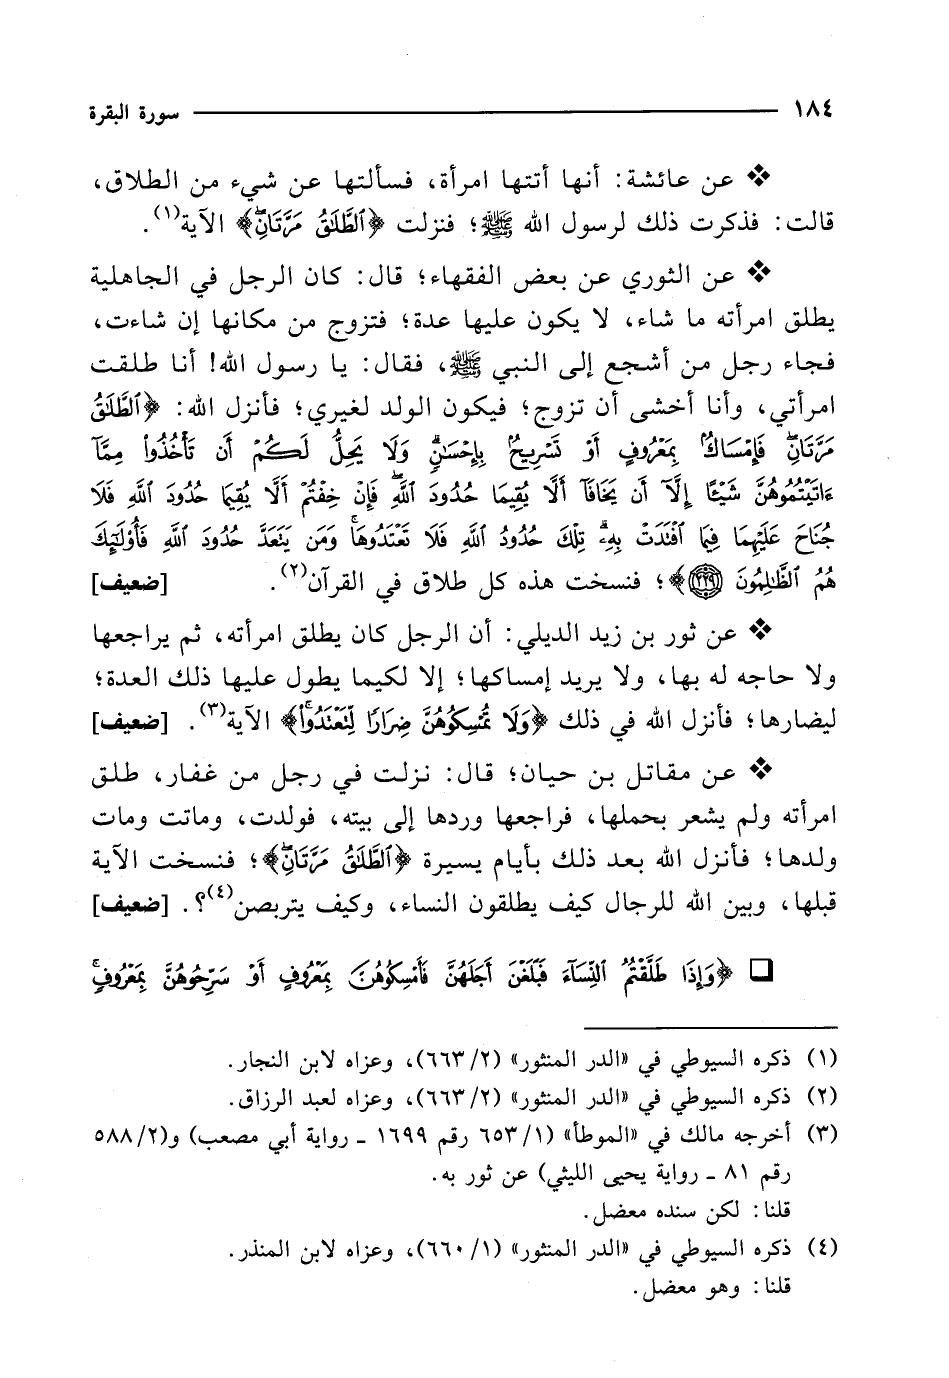 ١٨٤ سورة البقرة
❖ عن عائشة: أنها أتتها امرأة، فسألتها عن شيء من الطلاق،
قالت: فذكرت ذلك لرسول الله ﷺ؛ فنزلت ﴿ٱلطَّلَٰقُ مَرَّتَانِۖ﴾ الآية(١).
❖ عن الثوري عن بعض الفقهاء؛ قال: كان الرجل في الجاهلية
يطلق امرأته ما شاء، لا يكون عليها عدة؛ فتزوج من مكانها إن شاءت،
فجاء رجل من أشجع إلى النبي ﷺ، فقال: يا رسول الله! أنا طلقت
امرأتي، وأنا أخشى أن تزوج؛ فيكون الولد لغيري؛ فأنزل الله: ﴿ٱلطَّلَٰقُ
مَرَّتَانِۖ فَإِمْسَاكُۢ بِمَعْرُوفٍ أَوْ تَسْرِيحُۢ بِإِحْسَٰنٖۗ وَلَا يَحِلُّ لَكُمْ أَن تَأْخُذُواْ مِمَّآ
ءَاتَيْتُمُوهُنَّ شَيْـًٔا إِلَّآ أَن يَخَافَآ أَلَّا يُقِيمَا حُدُودَ ٱللَّهِۖ فَإِنْ خِفْتُمْ أَلَّا يُقِيمَا حُدُودَ ٱللَّهِ فَلَا
جُنَاحَ عَلَيْهِمَا فِيمَا ٱفْتَدَتْ بِهِۦۗ تِلْكَ حُدُودُ ٱللَّهِ فَلَا تَعْتَدُوهَاۚ وَمَن يَتَعَدَّ حُدُودَ ٱللَّهِ فَأُوْلَٰٓئِكَ
هُمُ ٱلظَّٰلِمُونَ ٢٢٩﴾؛ فنسخت هذه كل طلاق في القرآن(٢). [ضعيف]
❖ عن ثور بن زيد الديلي: أن الرجل كان يطلق امرأته، ثم يراجعها
ولا حاجه له بها، ولا يريد إمساكها؛ إلا لكيما يطول عليها ذلك العدة؛
ليضارها؛ فأنزل الله في ذلك ﴿وَلَا تُمْسِكُوهُنَّ ضِرَارًا لِّتَعْتَدُواْۚ﴾ الآية(٣). [ضعيف]
❖ عن مقاتل بن حيان؛ قال: نزلت في رجل من غفار، طلق
امرأته ولم يشعر بحملها، فراجعها وردها إلى بيته، فولدت، وماتت ومات
ولدها؛ فأنزل الله بعد ذلك بأيام يسيرة ﴿ٱلطَّلَٰقُ مَرَّتَانِۖ﴾؛ فنسخت الآية
قبلها، وبين الله للرجال كيف يطلقون النساء، وكيف يتربصن(٤)؟. [ضعيف]
❏ ﴿وَإِذَا طَلَّقْتُمُ ٱلنِّسَآءَ فَبَلَغْنَ أَجَلَهُنَّ فَأَمْسِكُوهُنَّ بِمَعْرُوفٍ أَوْ سَرِّحُوهُنَّ بِمَعْرُوفٖۚ
(١) ذكره السيوطي في «الدر المنثور» (٢/ ٦٦٣)، وعزاه لابن النجار.
(٢) ذكره السيوطي في «الدر المنثور» (٢/ ٦٦٣)، وعزاه لعبد الرزاق.
(٣) أخرجه مالك في «الموطأ» (١/ ٦٥٣ رقم ١٦٩٩ ـ رواية أبي مصعب) و(٢/ ٥٨٨
رقم ٨١ ـ رواية يحيى الليثي) عن ثور به.
قلنا: لكن سنده معضل.
(٤) ذكره السيوطي في «الدر المنثور» (١/ ٦٦٠)، وعزاه لابن المنذر.
قلنا: وهو معضل.